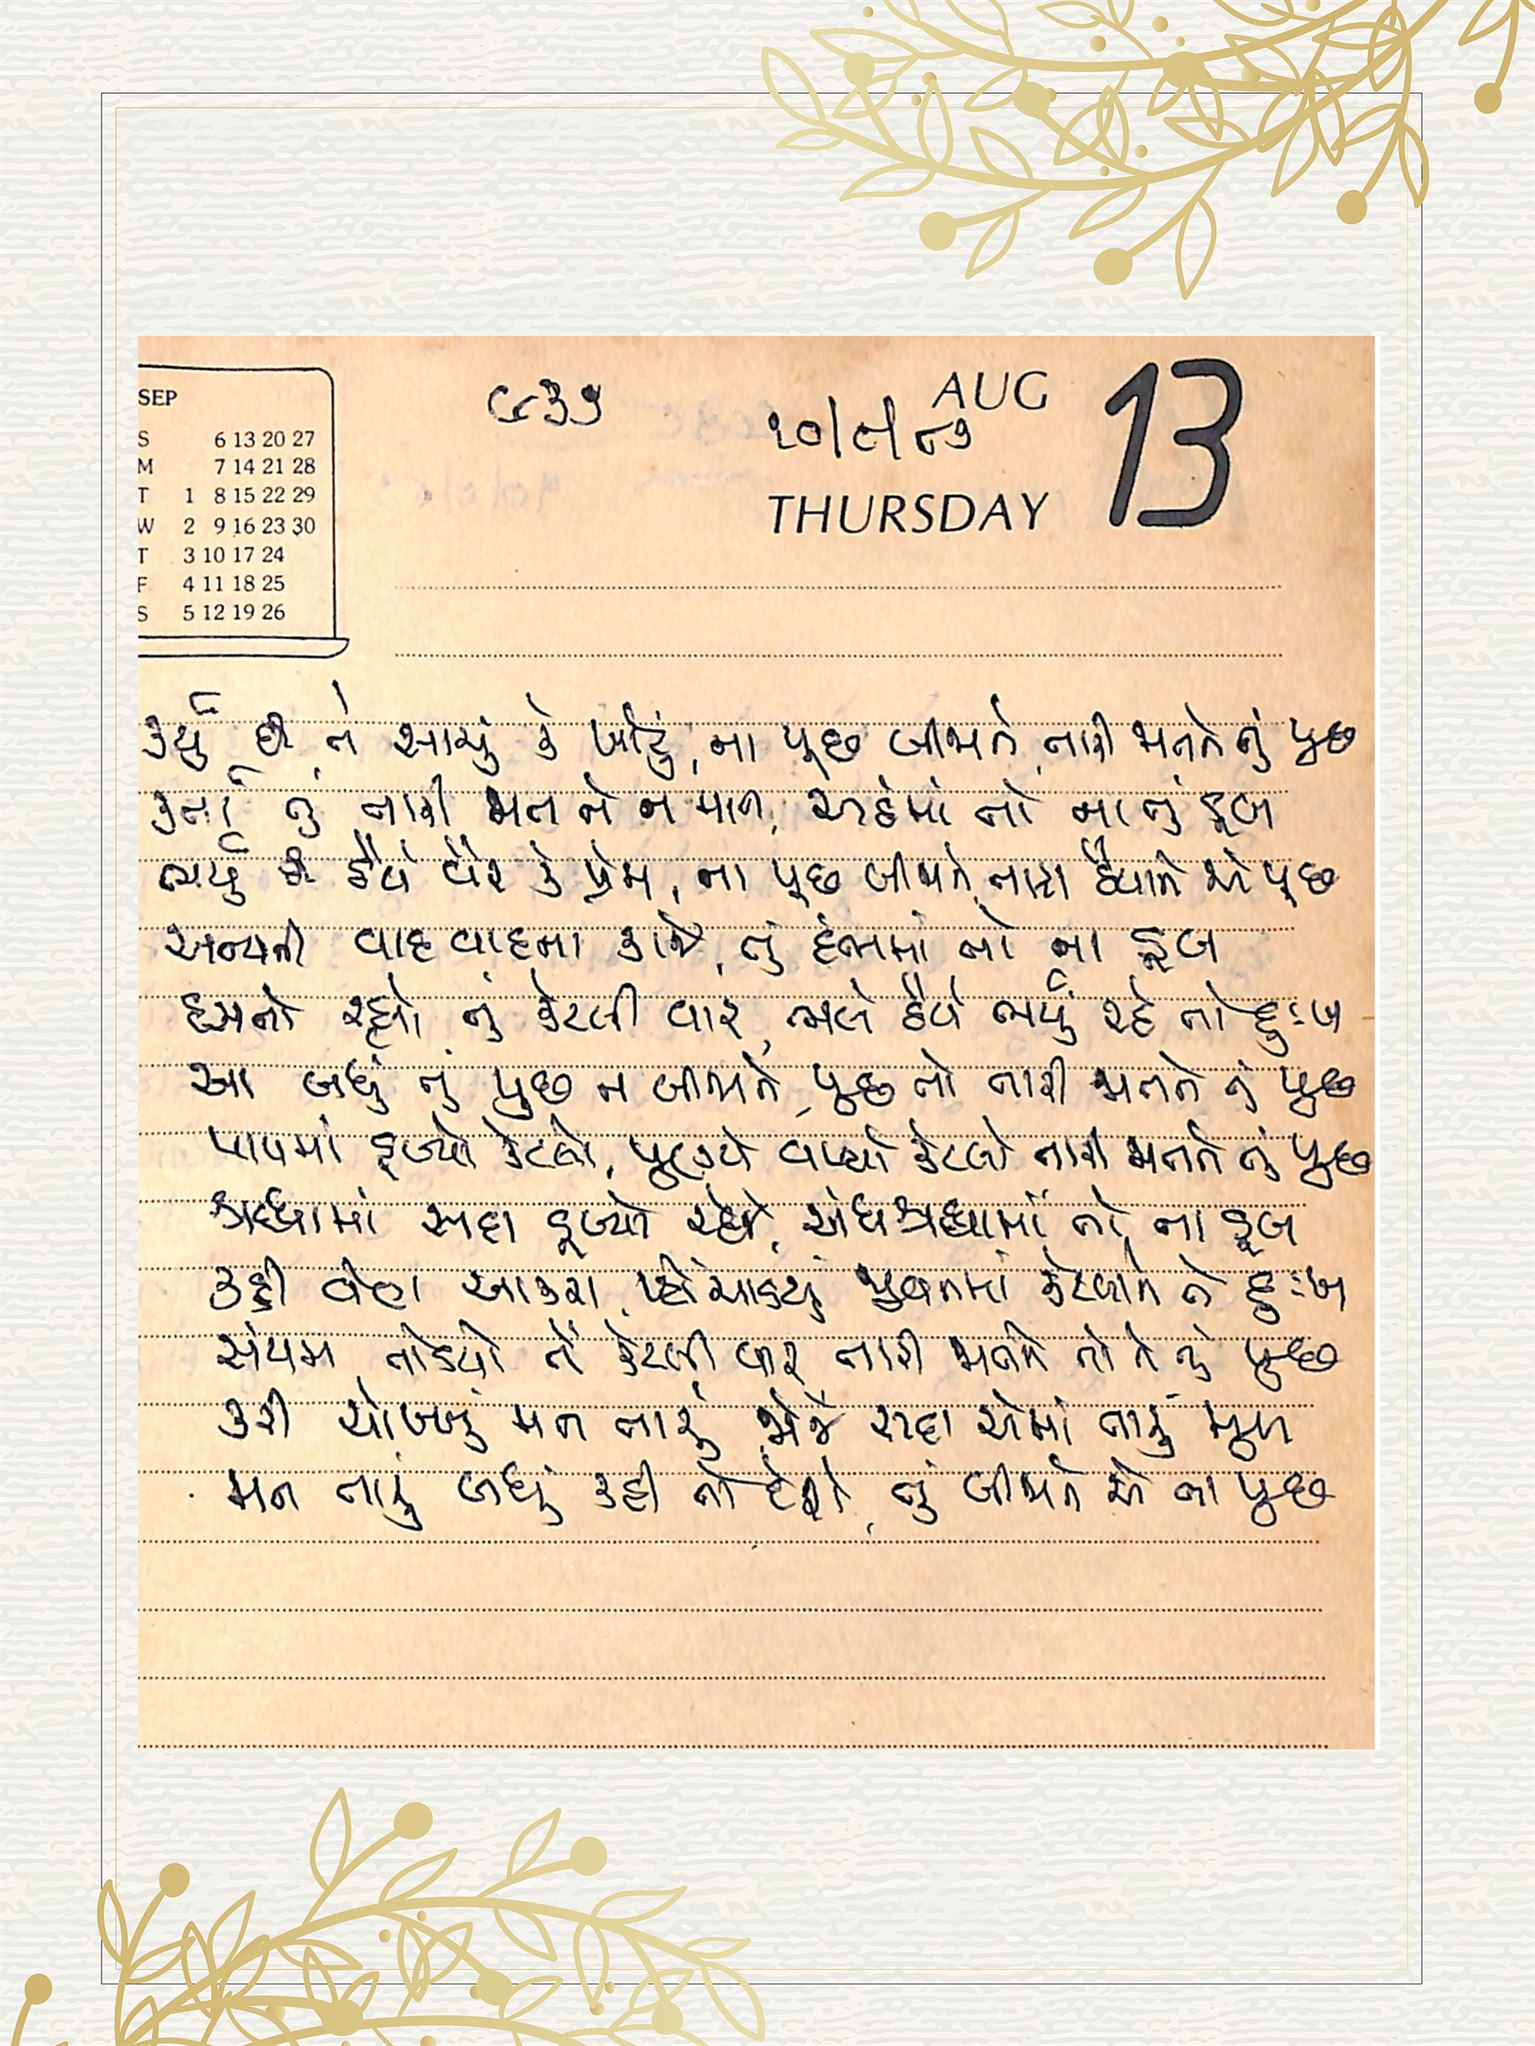 SEP
S 6 13 20 27
M 7 14 21 28
T 1 8 15 22 29
W 2 9 16 23 30
T 3 10 17 24
F 4 11 18 25
S 5 12 19 26
AUG 13
THURSDAY
કર્યું છે તેં સાચું કે ખોટું, ના પૂછ બીજાને, તારા મનને તું પૂછ
કર્તા તું તારા મન ને ન માન, અહંમાં તો ના તું ડૂબ
ભર્યું છે હૈયે વેર કે પ્રેમ, ના પૂછ બીજાને, તારા હૈયાને એ પૂછ
અન્યની વાહ વાહના કાજે, તું દંભમાં તો ના ડૂબ
હસતો રહ્યો તું કેટલી વાર, ભલે હૈયે ભર્યું રહે તો દુઃખ
આ બધું તું પુછ ન બીજાને, પુછ તો તારા મનને તું પુછ
પાપમાં ડૂબ્યો કેટલો, પુણ્યે વધ્યો કેટલો તારા મનને તું પુછ
શ્રદ્ધામાં સદા ડૂબ્યો રહેજે, અંધશ્રદ્ધામાં તો ના ડૂબ
કહી વેણ આકરા, પહોંચાડયું જીવનમાં કેટલાને તે દુઃખ
સંયમ તોડયો તેં કેટલી વાર તારા મનને તો તે તું પુછ
કરી ચોખ્ખું મન તારું, જોજે સદા એમાં તારું મુખ
મન તારું બધું કહી તો દેશે, તું બીજાને એ ના પુછ